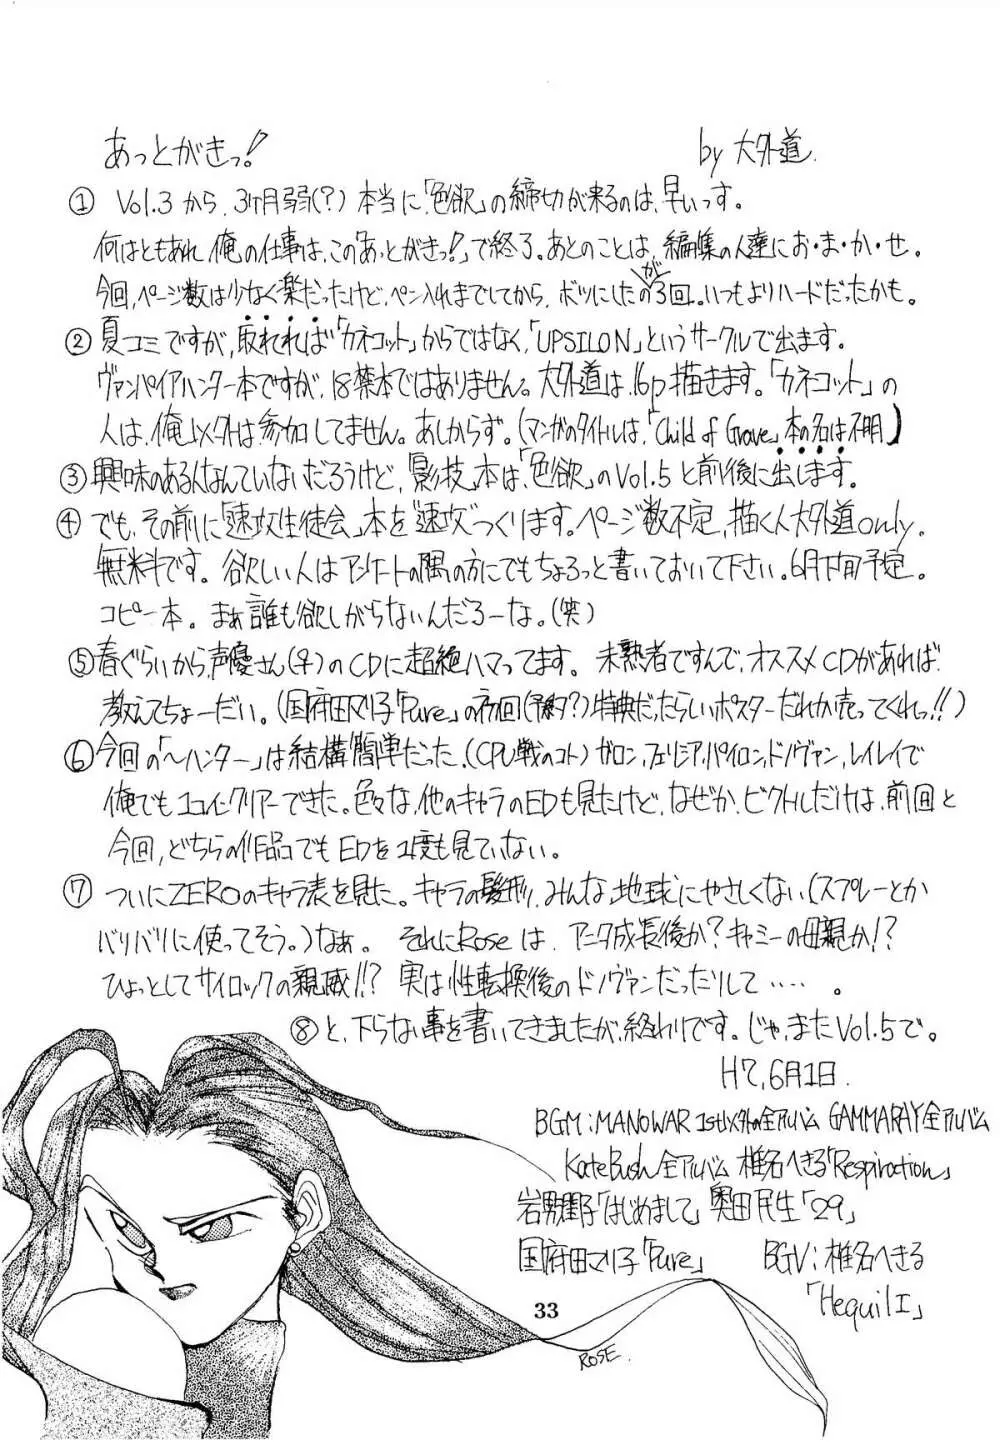 あっとがきっ!
by 大外道.
① Vol.3 から、3ヶ月弱(?) 本当に「色欲」の締切が来るのは、早いっす。
何はともあれ、俺の仕事は、この「あっとがきっ!」で終了。あとのことは、編集の人達にお・ま・か・せ。
今回、ページ数は少なく楽だったけど、ペン入れまでしてから、ボツにしたのが3回。いつもよりハードだったかも。
② 夏コミですが、取れれば「カネコット」からではなく、「UPSILON」というサークルで出ます。
ヴァンパイアハンター本ですが、18禁本ではありません。大外道は、16p描きます。「カネコット」の
人は、俺以外は参加してません。あしからず。(マンガのタイトルは、「Child of Grave」本の名は不明)
③ 興味のある人なんていないだろうけど、「影技」本は、「色欲」のVol.5 と前後に出します。
④ でも、その前に「速攻生徒会」本を“速攻”つくります。ページ数不定、描く人大外道only。
無料です。欲しい人はアンケートの隅の方にでもちょろっと書いておいて下さい。6月下旬予定。
コピー本。まぁ誰も欲しがらないんだろーな。(笑)
⑤ 春ぐらいから、声優さん(♀)のCDに超絶ハマってます。 未熟者ですんで、オススメCDがあれば、
教えてちょーだい。(国府田マリ子「Pure」の初回(予約?)特典だったらしいポスターだれか売ってくれっ!!)
⑥ 今回の「〜ハンター」は結構簡単だった。(CPU戦のコト)ガロン,フェリシア,パイロン,ドノヴァン,レイレイで
俺でも1コインクリアーできた。色々な、他のキャラのEDも見たけど、なぜか、ビクトルだけは、前回と
今回、どちらの作品でもEDを1度も見ていない。
⑦ ついにZEROのキャラ表を見た。キャラの髪形、みんな地球にやさしくない(スプレーとか
バリバリに使ってそう。)なぁ。 それにRoseは、アニタ成長後か?キャミーの母親か!?
ひょっとしてサイロックの親戚!!? 実は性転換後のドノヴァンだったりして‥‥‥。
⑧ と、下らない事を書いてきましたが、終わりです。じゃ、またVol.5で。
H7,6月1日.
BGM:MANOWAR 1st以外の全アルバム GAMMARAY全アルバム
KateBush全アルバム 椎名へきる「Respiration」
岩男潤子「はじめまして」奥田民生「29」
国府田マリ子「Pure」 BGV:椎名へきる
「HequilI」
33
ROSE.